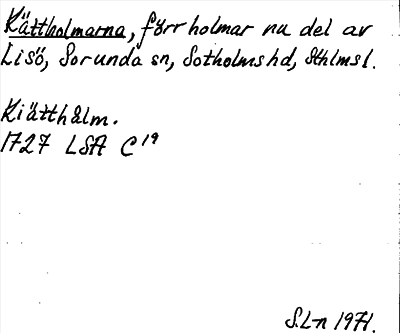 Kättholmarna, förr holmar nu del av
Lisö, Sorunda sn, Sotholms hd, Sthlms l.
Kiätthålm.
1727 LSA C19
S.L-n 1971.